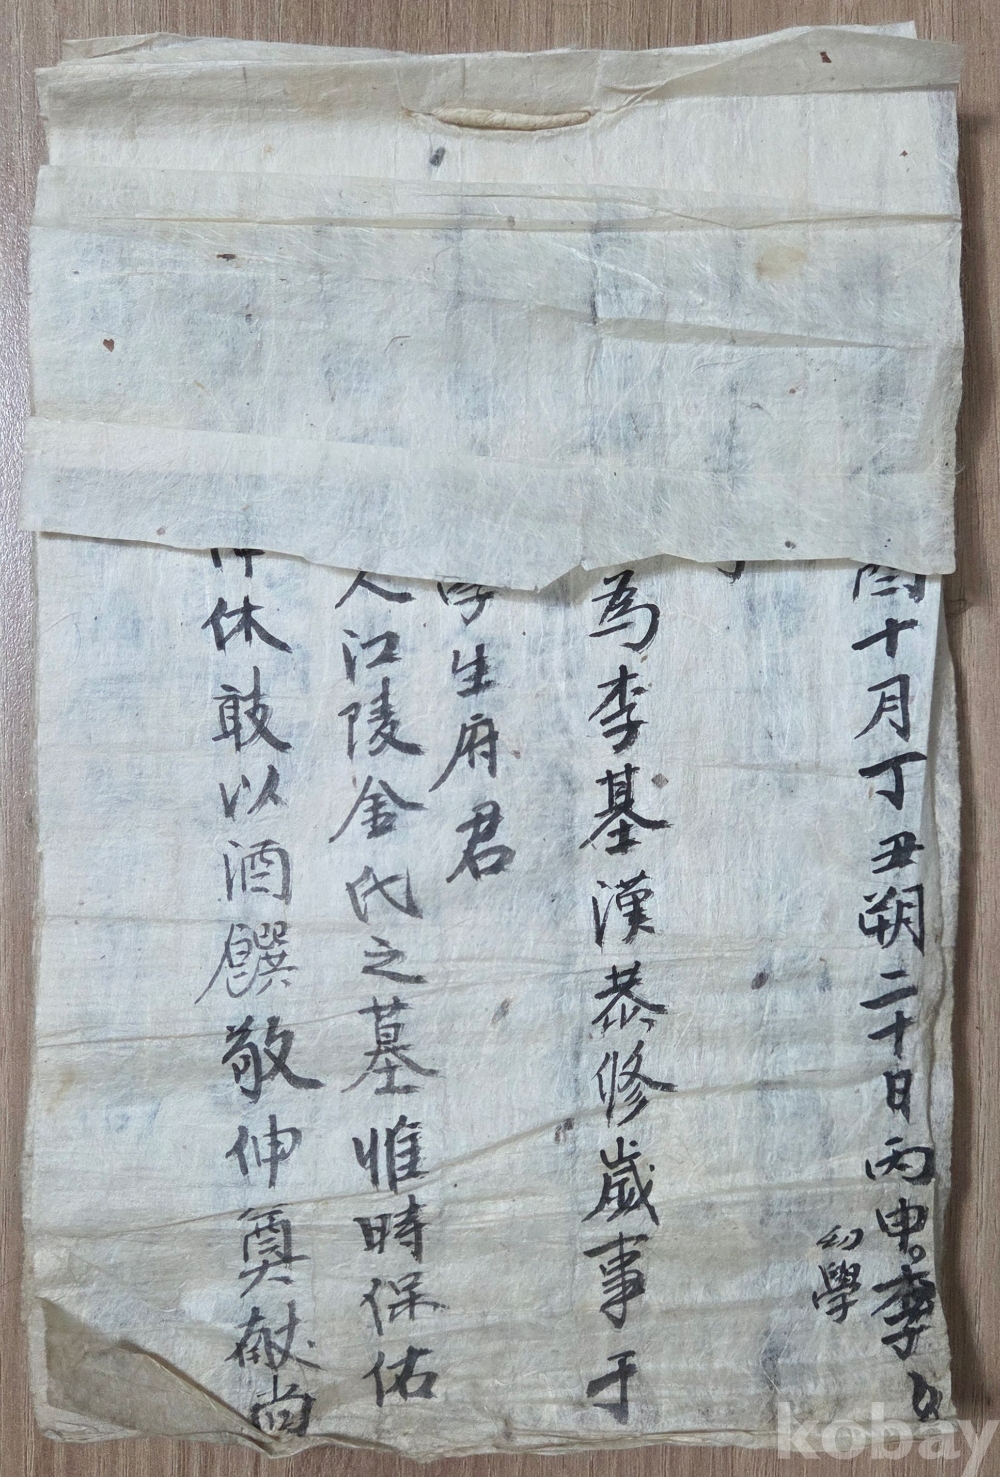 閏十月丁丑朔二十日丙申李
幼學
為李基漢恭修歲事于
學生府君
人江陵金氏之墓惟時保佑
休敢以酒饌敬伸奠献尚
kobay